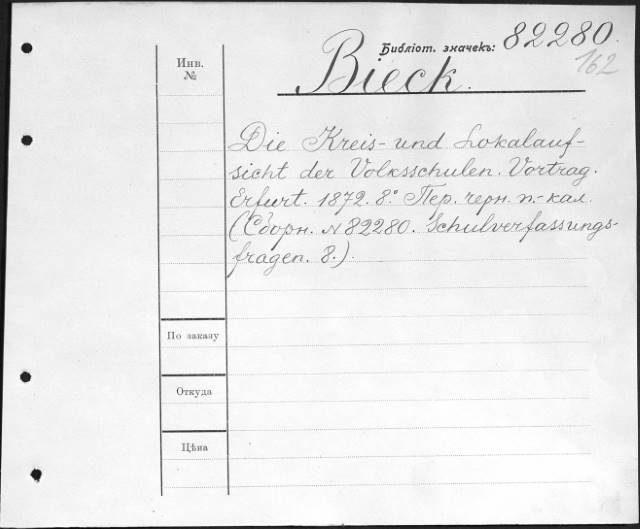 Библіот. значекъ: 82280.
162
Инв.
№
Bieck.
Die Kreis- und Lokalauf-
sicht der Volksschulen. Vortrag.
Erfurt. 1872. 8.° Пер. черн. п.-кал.
(Сборн. N 82280. Schulverfassungs-
fragen. 8.).
По заказу
Откуда
Цѣна